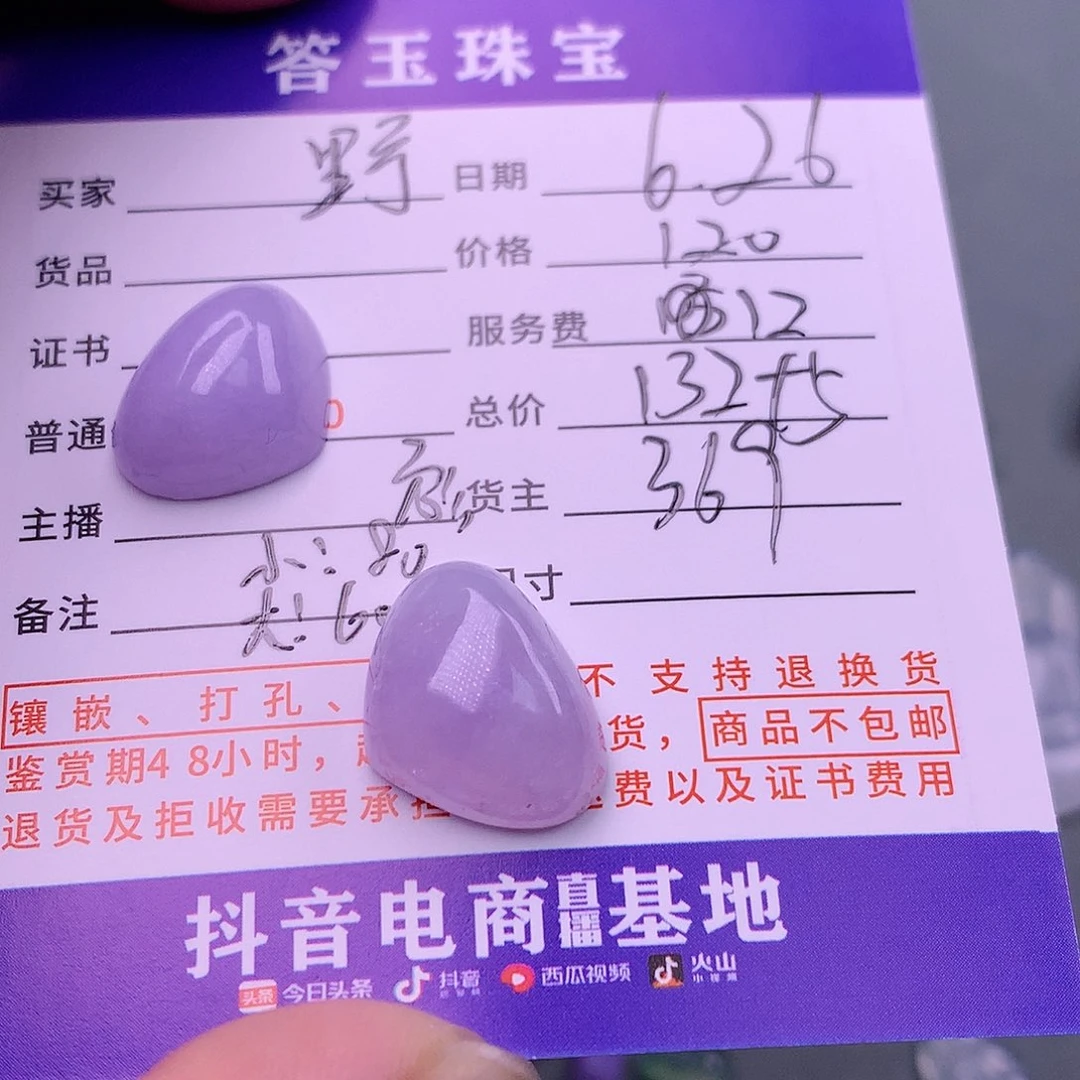 答玉珠宝
买家 野 日期 6.26
货品 价格 120
证书 服务费 12
普通 0 总价 132
主播 货主 369
小:80 尺寸
备注 大:60
镶嵌、打孔、 不支持退换货
鉴赏期48小时, 货,商品不包邮
退货及拒收需要承担 费以及证书费用
抖音电商直播基地
头条 今日头条 抖音 西瓜视频 火山